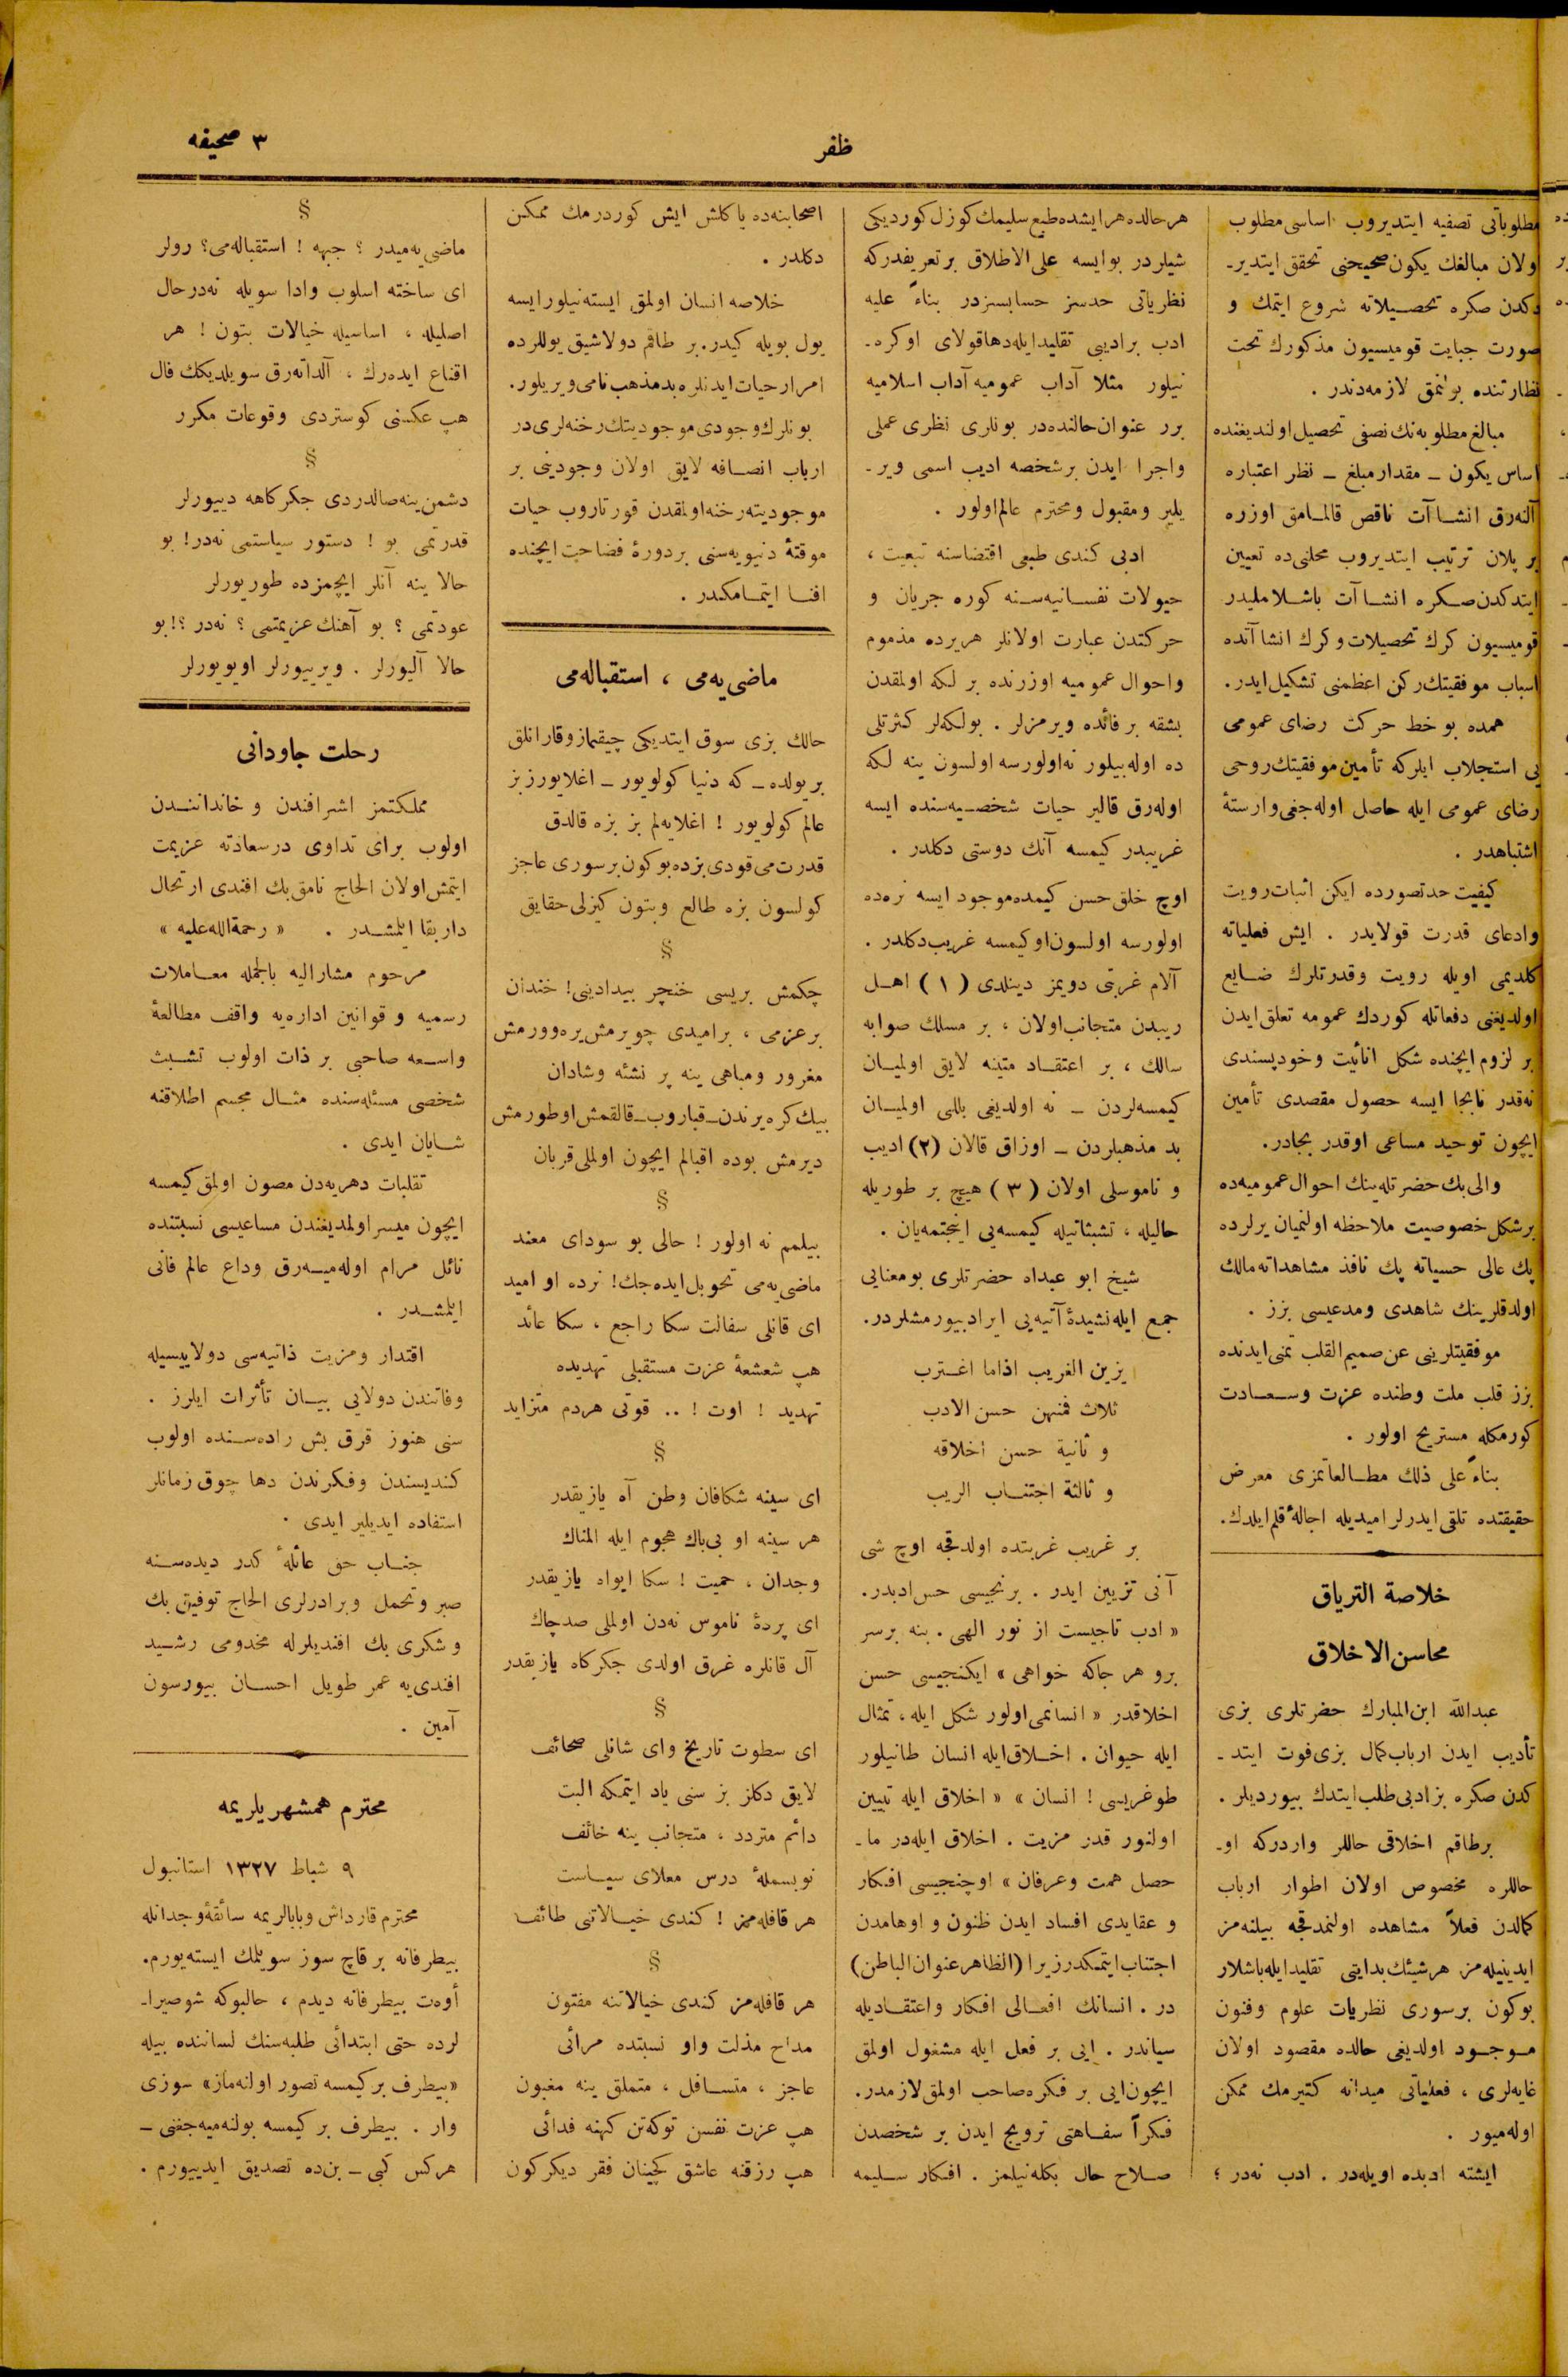 ٣ صحيفه
ظفر
مطلوباتی تصفيه ايتديروب اساسی مطلوب
ولان مبالغك يكون صحيحنی تحقق ايتدير ـ
دكدن صكره تحصيلاته شروع ايتمك و
صورت جبايت قوميسيون مذكورك تحت
نظارتنده بولنمق لازمه‌دندر .
مبالغ مطلوبه‌نك نصفی تحصيل اولنديغنده
اساس يكون ـ مقدار مبلغ ـ نظر اعتباره
آلنه‌رق انشاآت ناقص قالمامق اوزره
بر پلان ترتيب ايتديروب محلنی‌ده تعيين
ايتدكدن صكره انشاآت باشلامليدر
قوميسيون كرك تحصيلات و كرك انشاآتده
اسباب موفقيتك ركن اعظمنی تشكيل ايدر.
همده بو خط حركت رضای عمومی
يی استجلاب ايلركه تأمين موفقيتك روحی
رضای عمومی ايله حاصل اوله‌جغی وارستهٔ
اشتباهدر .
كيفيت حد تصورده ايكن اثبات رويت
وادعای قدرت قولايدر . ايش فعلياته
كلديمی اويله رويت وقدرتلرك ضايع
اولديغنی دفعاتله كوردك عمومه تعلق ايدن
بر لزوم ايچنده شكل انانيت وخودپسندی
نه‌قدر نابجا ايسه حصول مقصدی تأمين
ايچون توحيد مساعی اوقدر بجادر.
والی بك حضرتلرينك احوال عموميه‌ده
بر شكل خصوصيت ملاحظه اولنميان يرلرده
پك عالی حسياته پك نافذ مشاهداته مالك
اولدقلرينك شاهدی ومدعيسی بزز .
موفقيتلرينی عن صميم القلب تمنی ايدنده
بزز قلب ملت وطنده عزت وسعادت
كورمكله مستريح اولور .
بناءً علی ذلك مطالعاتمزی معرض
حقيقتده تلقی ايدرلر اميديله اجالهٔ قلم ايلدك.
خلاصة الترياق
محاسن الاخلاق
عبدالله ابن المبارك حضرتلری بزی
تأديب ايدن ارباب كمال بزی فوت ايتد ـ
كدن صكره بز ادبی طلب ايتدك بيورديلر .
برطاقم اخلاقی حاللر واردركه او ـ
حاللره مخصوص اولان اطوار ارباب
كمالدن فعلاً مشاهده اولنمدقجه بيلنه‌مز
ايدينيله‌مز هر شيئك بدايتی تقليد ايله باشلار
بوكون برسوری نظريات علوم وفنون
موجود اولديغی حالده مقصود اولان
غايه‌لری ، فعلياتی ميدانه كتيرمك ممكن
اوله‌ميور .
ايشته ادبده اويله‌در . ادب نه‌در ؟
هر حالده هر ايشده طبع سليمك كوزل كورديكی
شيلردر بو ايسه علی الاطلاق بر تعريفدركه
نظرياتی حدسز حسابسزدر بناءً عليه
ادب بر اديبی تقليد ايله دها قولای اوكره ـ
نيلور مثلا آداب عموميه آداب اسلاميه
برر عنوان حالنده‌در بونلری نظری عملی
واجرا ايدن برشخصه اديب اسمی وير ـ
يلير ومقبول ومحترم عالم اولور .
ادبی كندی طبعی اقتضاسنه تبعيت ،
حيولات نفسانيه‌سنه كوره جريان و
حركتدن عبارت اولانلر هريرده مذموم
واحوال عموميه اوزرنده بر لكه اولمقدن
بشقه بر فائده ويرمزلر . بولكه‌لر كثرتلی
ده اوله‌بيلور نه اولورسه اولسون ينه لكه
اوله‌رق قالير حيات شخصيه‌سنده ايسه
غريبدر كيمسه آنك دوستی دكلدر .
اوچ خلق حسن كيمده موجود ايسه نره‌ده
اولورسه اولسون او كيمسه غريب دكلدر .
آلام غربتی دويمز دينلدی (١) اهل
ريبدن متجانب اولان ، بر مسلك صوابه
سالك ، بر اعتقاد متينه لايق اولميان
كيمسه‌لردن ـ نه اولديغی بللی اولميان
بد مذهبلردن ـ اوزاق قالان (٢) اديب
و ناموسلی اولان (٣) هيچ بر طوريله
حاليله ، تشبثاتيله كيمسه‌يی اينجتمه‌يان .
شيخ ابو عبدالله حضرتلری بو معنايی
جمع ايله نشيدهٔ آتيه‌يی ايراد بيورمشلردر.
يزين الغريب اذاما اغترب
ثلاث فمنهن حسن الادب
و ثانية حسن اخلاقه
و ثالثة اجتناب الريب
بر غريب غربتده اولدقجه اوچ شی
آنی تزيين ايدر . برنجيسی حسن ادبدر.
« ادب تاجيست از نور الهی . بنه برسر
برو هر جاكه خواهی » ايكنجيسی حسن
اخلاقدر « انسانمی اولور شكل ايله ، تمثال
ايله حيوان . اخلاق ايله انسان طانيلور
طوغريسی ! انسان » « اخلاق ايله تبيين
اولنور قدر مزيت . اخلاق ايله‌در ما ـ
حصل همت وعرفان » اوچنجيسی افكار
و عقايدی افساد ايدن ظنون و اوهامدن
اجتناب ايتمكدر زيرا (الظاهر عنوان الباطن)
در . انسانك افعالی افكار واعتقاديله
سياندر . ايی بر فعل ايله مشغول اولمق
ايچون ايی بر فكره صاحب اولمق لازمدر.
فكراً سفاهتی ترويج ايدن بر شخصدن
صلاح حال بكله‌نيلمز . افكار سليمه
اصحابنه‌ده ياكلش ايش كوردرمك ممكن
دكلدر .
خلاصه انسان اولمق ايسته‌نيلور ايسه
يول بويله كيدر. بر طاقم دولاشيق يوللرده
امرار حيات ايدنلره بد مذهب نامی ويريلور.
بونلرك وجودی موجوديتك رخنه‌لری‌در
ارباب انصافه لايق اولان وجودينی بر
موجوديته رخنه اولمقدن قورتاروب حيات
موقتهٔ دنيويه‌سنی بر دورهٔ فضاحت ايچنده
افنا ايتمامكدر .
ماضی‌يه‌می ، استقباله‌می
حالك بزی سوق ايتديكی چيقماز وقارانلق
بر يولده ـ كه دنيا كولويور ـ اغلايورز بز
عالم كولويور ! اغلايه‌لم بز بزه قالدق
قدرت می قودی بزده بوكون برسوری عاجز
كولسون بزه طالع وبتون كيزلی حقايق
§
چكمش بريسی خنجر بيدادينی! خندان
بر عزمی ، بر اميدی چويرمش يره وورمش
مغرور ومباهی ينه پر نشئه وشادان
بيك كره يرندن ـ قباروب ـ قالقمش اوطورمش
ديرمش بوده اقبالم ايچون اولملی قربان
§
بيلمم نه اولور ! حالی بو سودای معند
ماضی‌يه‌می تحويل ايده‌جك! نرده او اميد
ای قانلی سفالت سكا راجع ، سكا عائد
هپ شعشعهٔ عزت مستقبلی تهديده
تهديد ! اوت ! .. قوتی هردم متزايد
§
ای سينه شكافان وطن آه يازيقدر
هر سينه او بی‌باك هجوم ايله المناك
وجدان ، حميت ! سكا ايواه يازيقدر
ای پردهٔ ناموس نه‌دن اولملی صدچاك
آل قانلره غرق اولدی جكركاه يازيقدر
§
ای سطوت تاريخ وای شانلی صحائف
لايق دكلز بز سنی ياد ايتمكه البت
دائم متردد ، متجانب ينه خائف
نوبسملهٔ درس معلای سياست
هر قافله‌مز ! كندی خيالاتنی طائف
§
هر قافله‌مز كندی خيالاتنه مفتون
مداح مذلت واو نسبتده مرائی
عاجز ، متسافل ، متملق ينه مغبون
هپ عزت نفسن توكه‌تن كهنه فدائی
هپ رزقنه عاشق كچينان فقر ديكركون
§
ماضی‌يه‌ميدر ؟ جبهه ! استقباله‌می؟ رولر
ای ساخته اسلوب وادا سويله نه‌در حال
اصليله ، اساسيله خيالات بتون ! هر
اقناع ايده‌رك ، آلداته‌رق سويلديكك فال
هپ عكسنی كوستردی وقوعات مكرر
§
دشمن ينه صالدردی جكركاهه دييورلر
قدرتمی بو ! دستور سياستمی نه‌در! بو
حالا ينه آنلر ايچمزده طوريورلر
عودتمی ؟ بو آهنك عزيمتمی ؟ نه‌در ؟! بو
حالا آليورلر . ويرييورلر اويويورلر
رحلت جاودانی
مملكتمز اشرافندن و خاندانندن
اولوب برای تداوی درسعادته عزيمت
ايتمش اولان الحاج نامق بك افندی ارتحال
دار بقا ايلمشدر . « رحمة الله عليه »
مرحوم مشاراليه بالجمله معاملات
رسميه و قوانين اداره‌يه واقف مطالعهٔ
واسعه صاحبی بر ذات اولوب تشبث
شخصی مسئله‌سنده مثال مجسم اطلاقنه
شايان ايدی .
تقلبات دهريه‌دن مصون اولمق كيمسه
ايچون ميسر اولمديغندن مساعيسی نسبتنده
نائل مرام اوله‌ميه‌رق وداع عالم فانی
ايلمشدر .
اقتدار ومزيت ذاتيه‌سی دولاييسيله
وفاتندن دولايی بيان تأثرات ايلرز .
سنی هنوز قرق بش راده‌سنده اولوب
كنديسندن وفكرندن دها چوق زمانلر
استفاده ايديلير ايدی .
جناب حق عائلهٔ كدر ديده‌سنه
صبر وتحمل وبرادرلری الحاج توفيق بك
و شكری بك افنديلرله مخدومی رشيد
افندی‌يه عمر طويل احسان بيورسون
آمين .
محترم همشهريلريمه
٩ شباط ١٣٢٧ استانبول
محترم قارداش وبابالريمه سائقهٔ وجدانله
بيطرفانه بر قاچ سوز سويلمك ايسته‌يورم.
أوت بيطرفانه ديدم ، حالبوكه شو صيرا ـ
لرده حتی ابتدائی طلبه‌سنك لساننده بيله
«بيطرف بر كيمسه تصور اولنه‌ماز» سوزی
وار . بيطرف بر كيمسه بولنه‌ميه‌جغنی ـ
هركس كبی ـ بن‌ده تصديق ايدييورم .